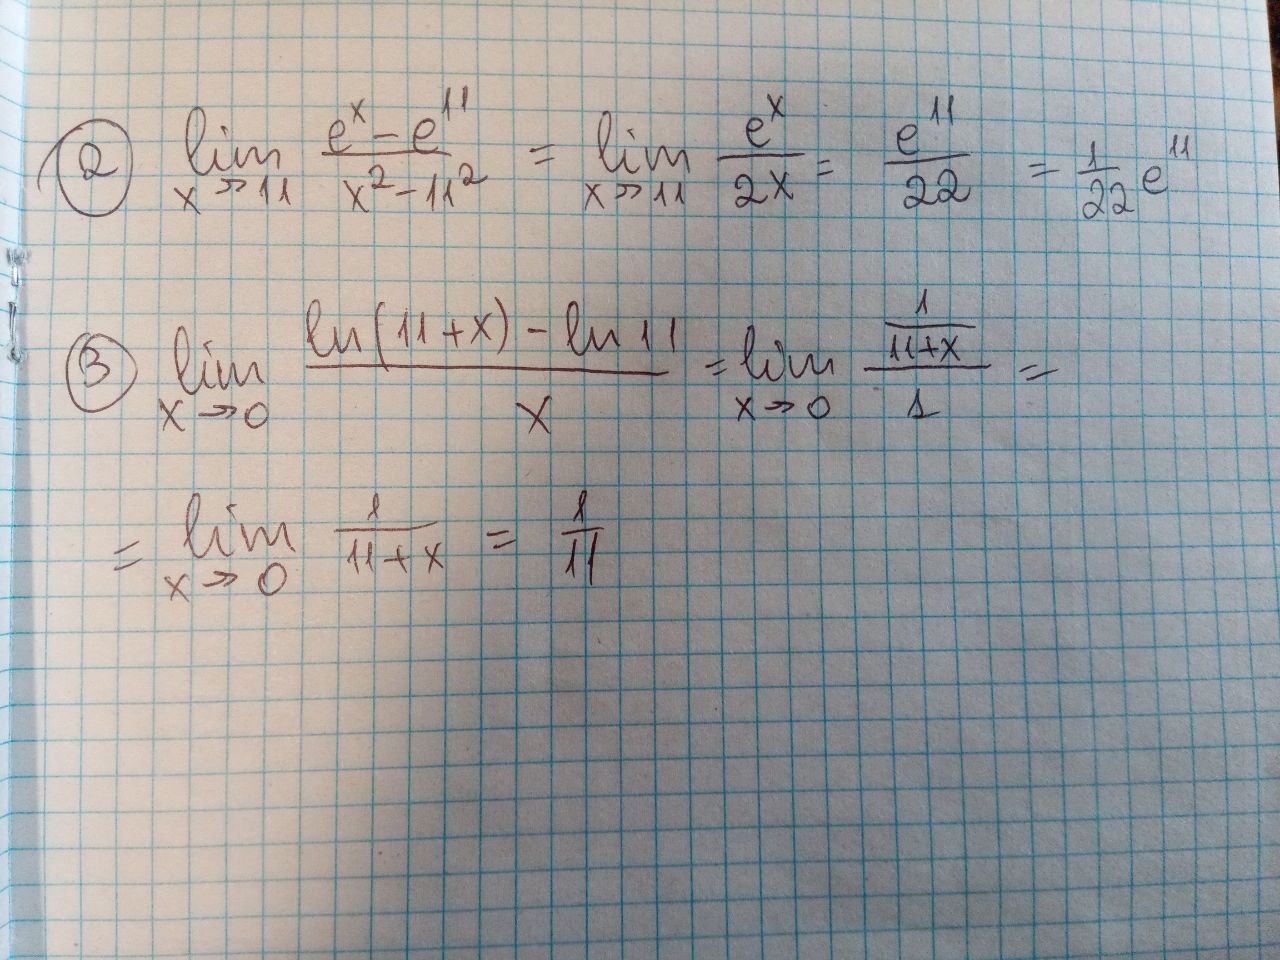 ② lim x→11 (e^x - e^11)/(x² - 11²) = lim x→11 e^x/(2x) = e^11/22 = 1/22 e^11
③ lim x→0 (ln(11+x) - ln 11)/x = lim x→0 (1/(11+x))/1 =
= lim x→0 1/(11+x) = 1/11